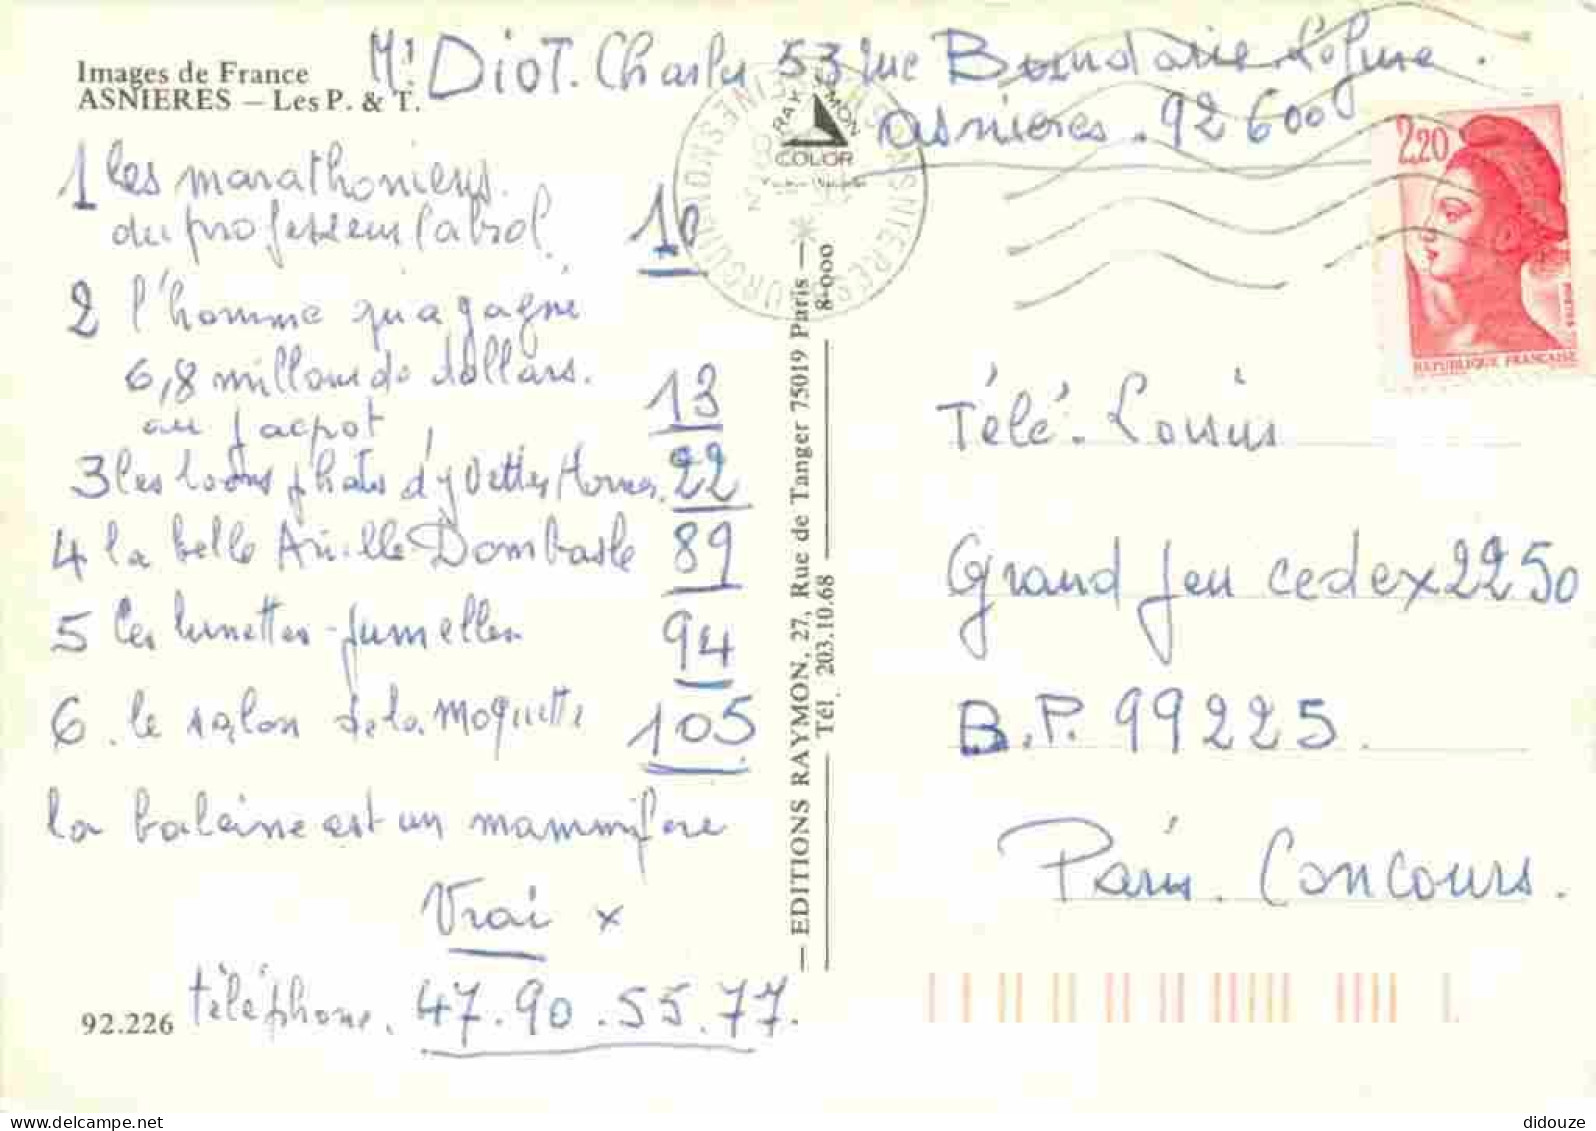 Images de France
ASNIERES — Les P. & T.
Mr DIOT. Charles 53 rue
asnieres. 92600
RAYMON
COLOR
2,20
POSTES
REPUBLIQUE FRANÇAISE
1 les marathoniens
du professeur Cabrol. 10
2 l'homme qui a gagné
6,8 millions de dollars.
au jacpot 13
3 les bons plats d'yvettes Horner. 22
4 la belle Arielle Dombasle 89
5 les lunettes-jumelles 94
6. le salon de la moquette 105
la baleine est un mammifere
Vrai x
téléphone. 47.90.55.77.
92.226
— EDITIONS RAYMON, 27, Rue de Tanger 75019 Paris —
— Tél. 203.10.68 — 8-000
Télé. Loisirs
Grand Jeu cedex 2250
B.P. 99225.
Paris. Concours.
didouze